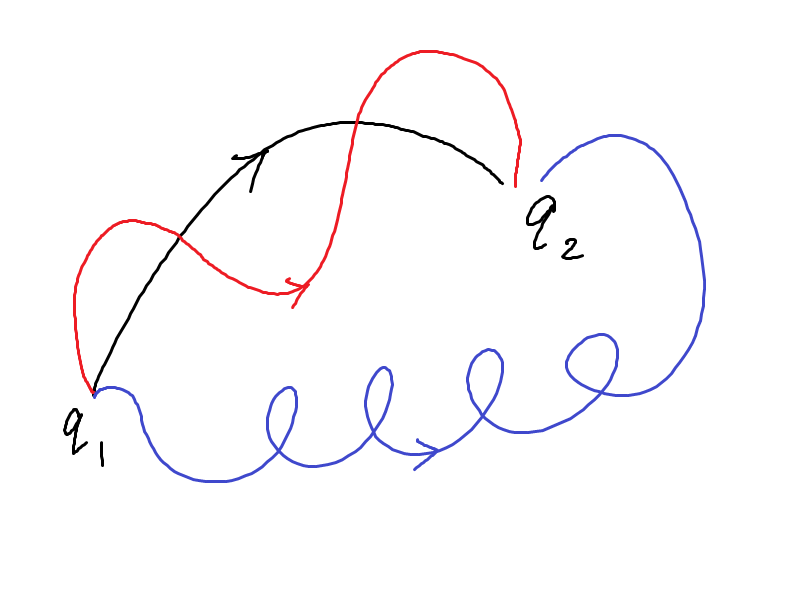 q₂
q₁